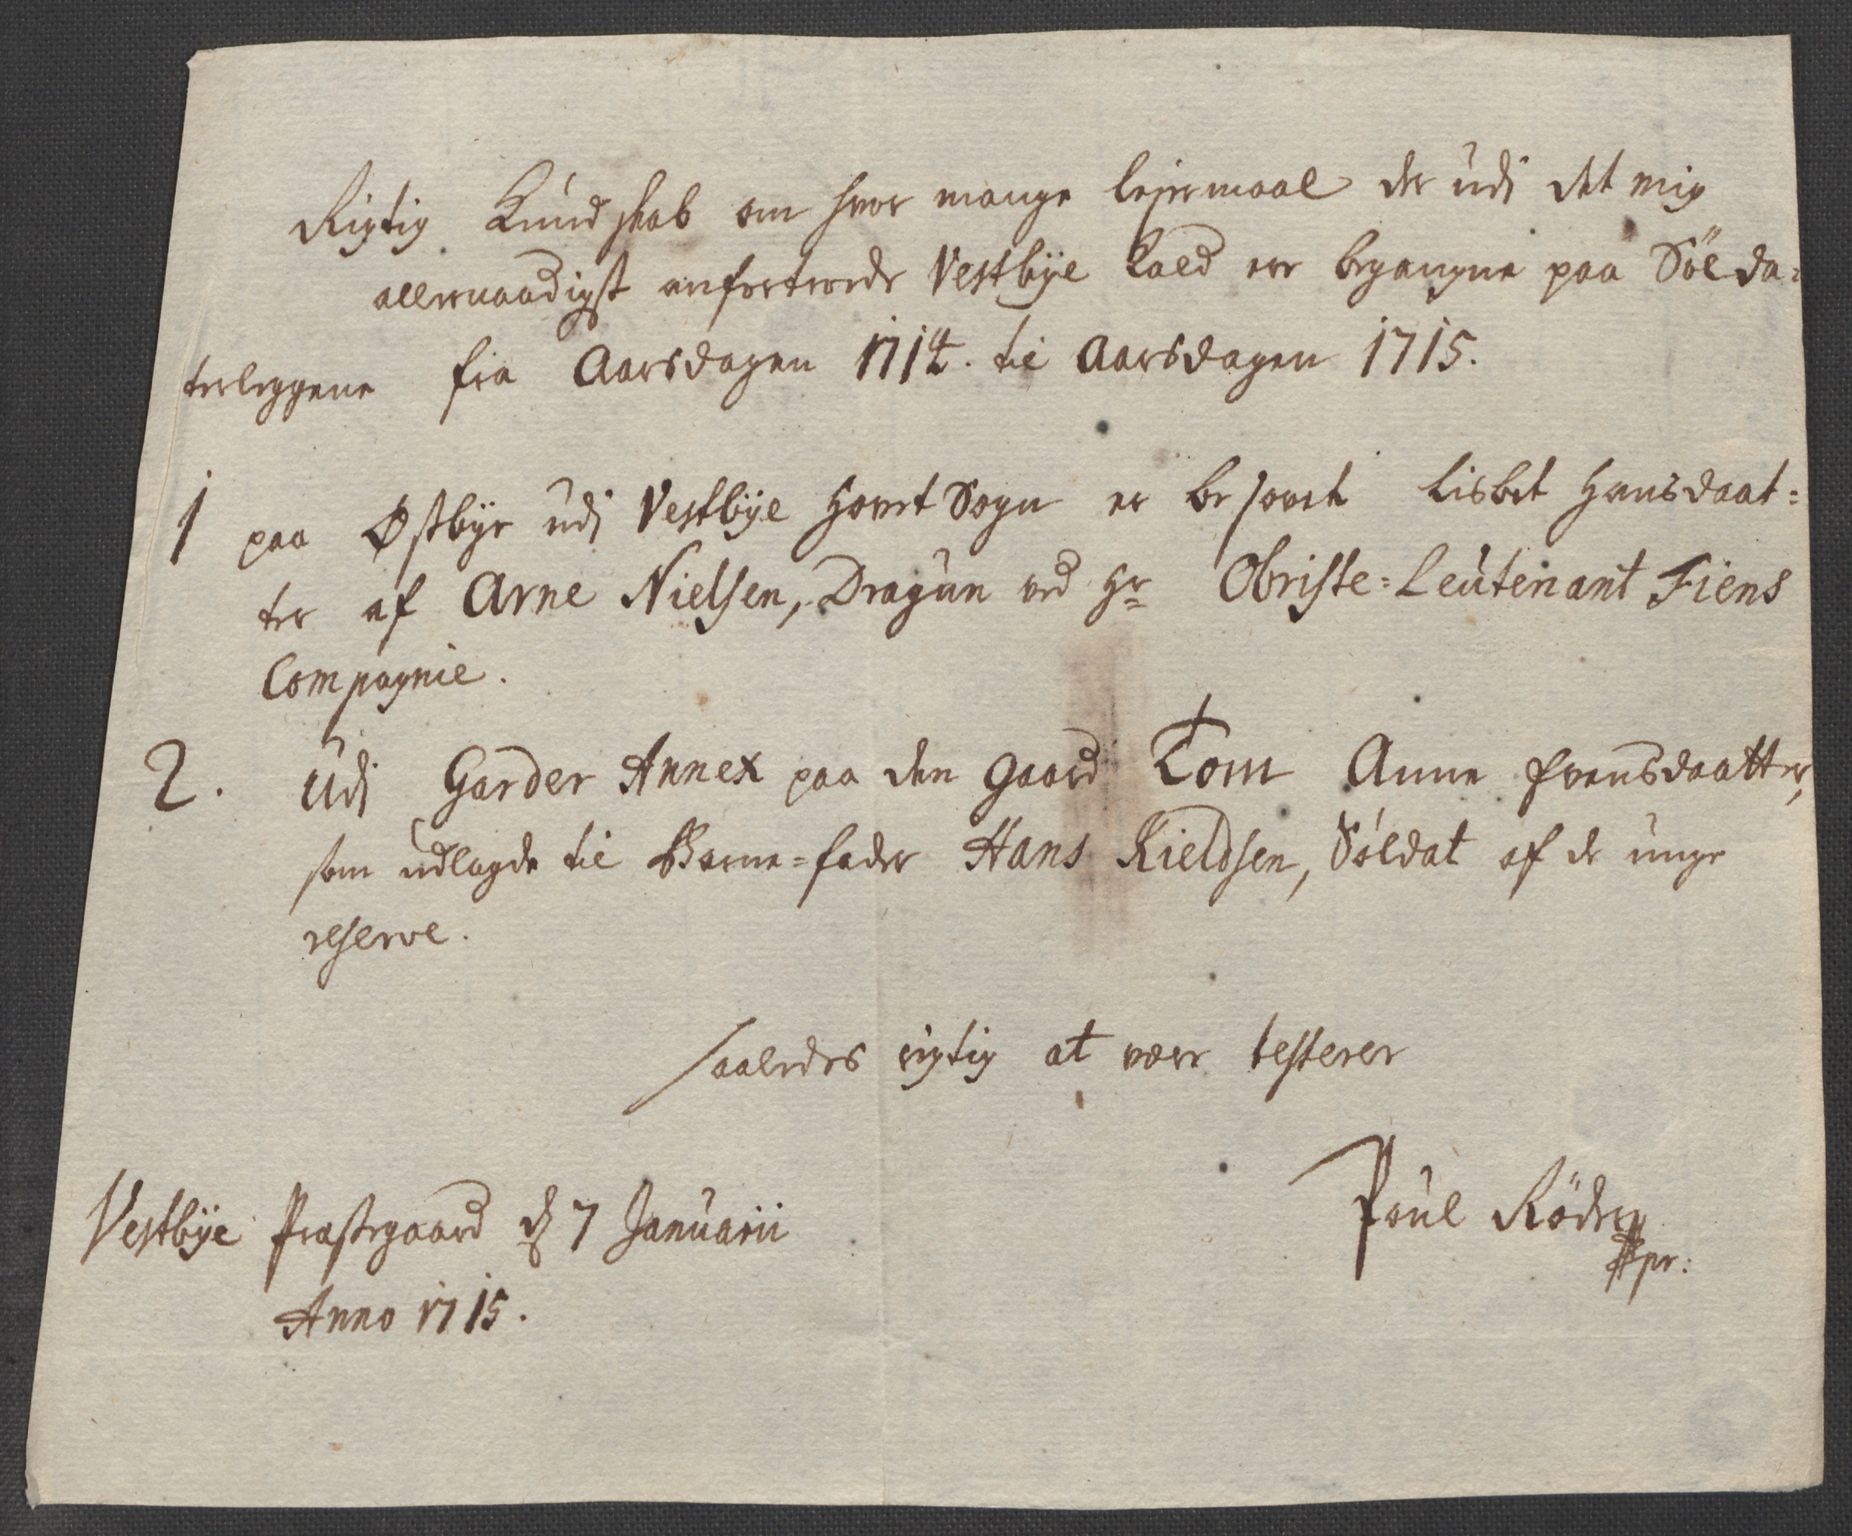 Rigtig Kundskab om hvor mange lejermaal der udj det mig
allernaadigst anfortroede Vestbÿe Kald ere begangne paa Solda=
terleggene fra Aarsdagen 1714. til Aarsdagen 1715.
1 paa Østbÿe udj Vestbÿe Hovet Sogn er besovet Lisbet Hansdaat=
ter af Arne Nielsen, Dragun ved Hr Obriste=Leutenant Fiens
Compagnie.
2. Udj Garder Annex paa den gaard Tom Anne Svensdaatter,
som udlagde til Barne=fader Hans Kieldsen, Soldat af de unge
reserve.
saaledes rigtig at være testerer
Vestbÿe Præstegaard d 7 Januarii
Anno 1715.
Poul Röder
mpr: